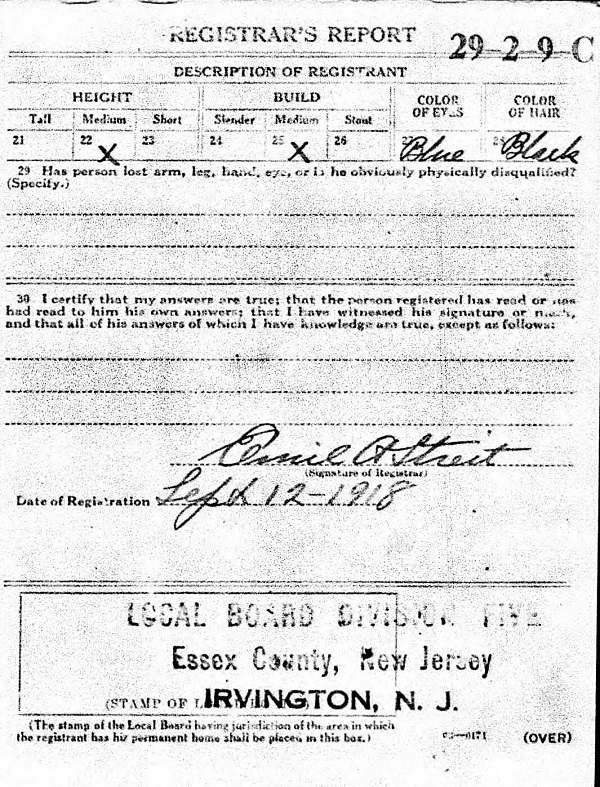 REGISTRAR'S REPORT
29-2-9-C
DESCRIPTION OF REGISTRANT
HEIGHT BUILD COLOR OF EYES COLOR OF HAIR
Tall Medium Short Slender Medium Stout
21 22 X 23 24 25 X 26 27 Blue 28 Black
29 Has person lost arm, leg, hand, eye, or is he obviously physically disqualified?
(Specify.)
30 I certify that my answers are true; that the person registered has read or has
had read to him his own answers; that I have witnessed his signature or mark,
and that all of his answers of which I have knowledge are true, except as follows:
Emil A Streit
(Signature of Registrar)
Date of Registration Sept 12-1918
LOCAL BOARD DIVISION FIVE
Essex County, New Jersey
(STAMP OF L
IRVINGTON, N. J.
(The stamp of the Local Board having jurisdiction of the area in which
the registrant has his permanent home shall be placed in this box.)
(OVER)